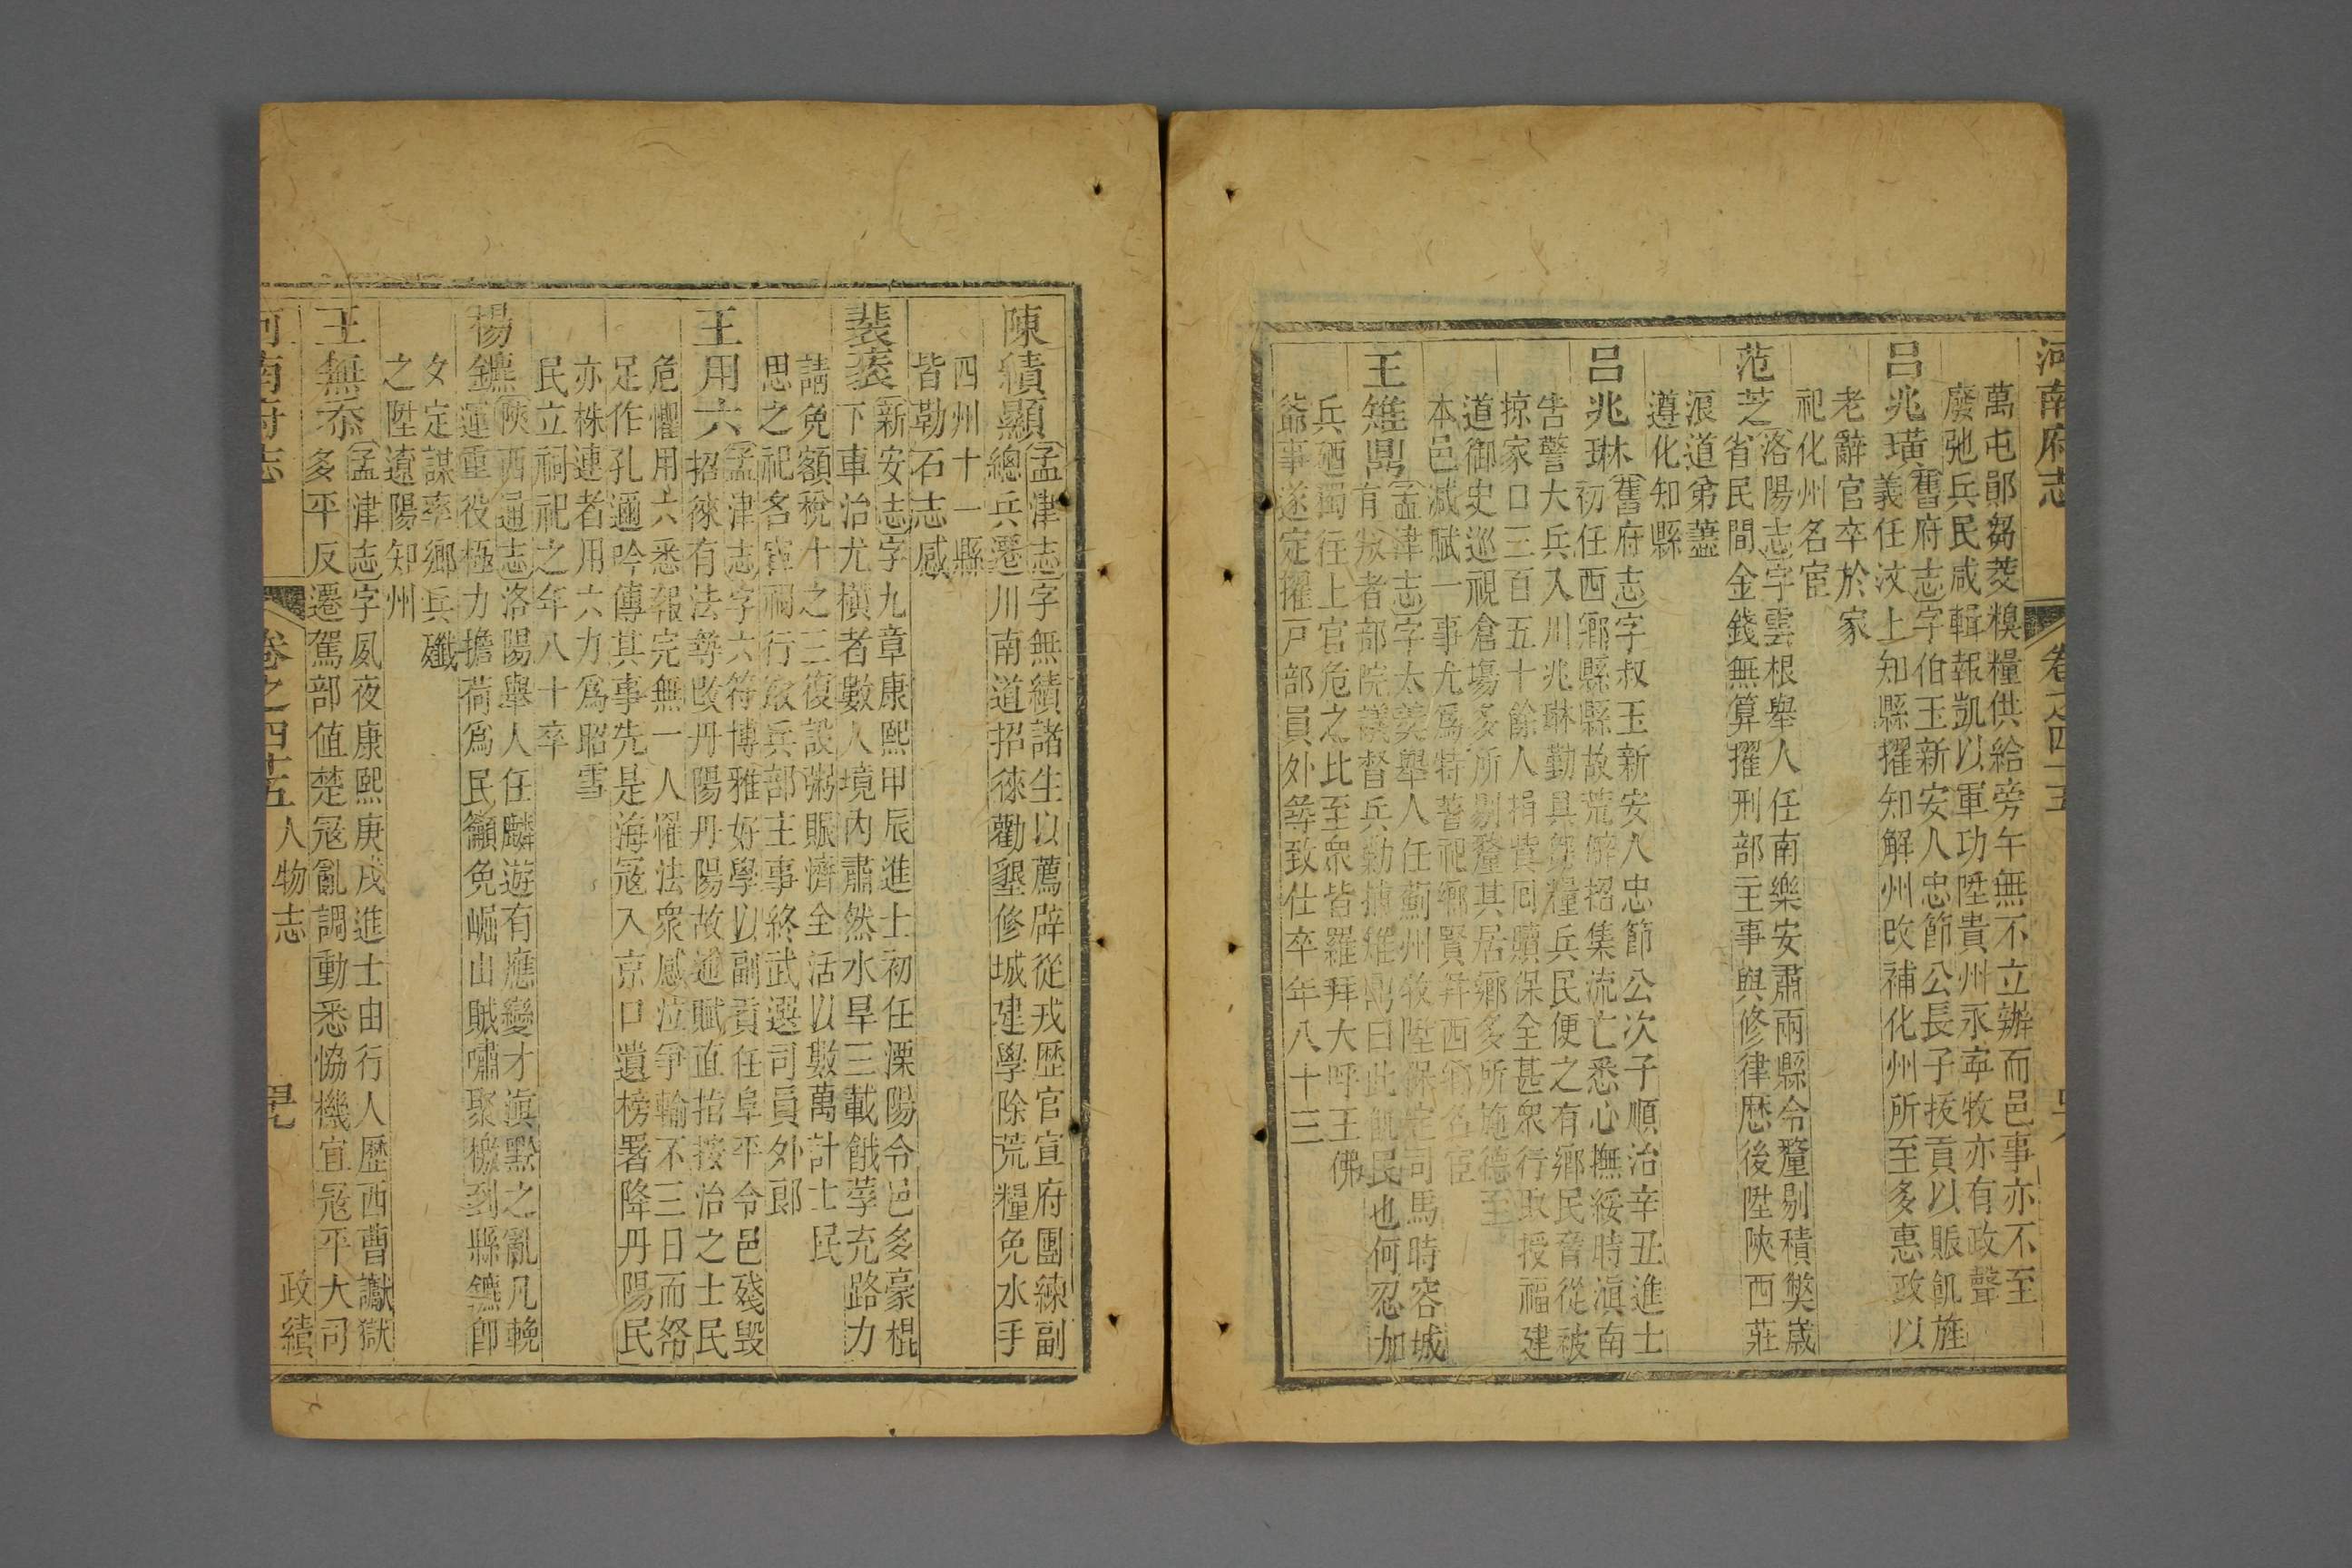 河南府志 卷之四十五
萬屯鄖芻茭糗糧供給旁午無不立辦而邑事亦不至
廢弛兵民咸輯報凱以軍功陞貴州永寧牧亦有政聲
呂兆璜(舊府志)字伯玉新安人忠節公長子拔貢以賑飢旌
義任汶上知縣擢知解州改補化州所至多惠政以
老辭官卒於家
祀化州名宦
范芝(洛陽志)字雲根舉人任南樂安肅兩縣令釐剔積獘歲
省民間金錢無算擢刑部主事與修律歷後陞陝西莊
浪道弟藎
遵化知縣
呂兆琳(舊府志)字叔玉新安人忠節公次子順治辛丑進士
初任西鄉縣縣故荒僻招集流亡悉心撫綏時滇南
告警大兵入川兆琳勤具芻糧兵民便之有鄉民脅從被
掠家口三百五十餘人捐貲囘贖保全甚衆行取授福建
道御史巡視倉場多所剔釐其居鄉多所施德至
本邑減賦一事尤爲特著祀鄉賢并西鄉名宦
王雉鼎(孟津志)字太羮舉人任薊州牧陞保定司馬時容城
有叛者部院議督兵勦捕雉鼎曰此飢民也何忍加
兵廼獨往上官危之比至衆皆羅拜大呼王佛
爺事遂定擢戸部員外等致仕卒年八十三
陳績顯(孟津志)字無績諸生以薦辟從戎歷官宣府團練副
總兵遷川南道招徠勸墾修城建學除荒糧免水手
四州十一縣
皆勒石志感
裴衮(新安志)字九章康熙甲辰進士初任溧陽令邑多豪棍
下車治尤橫者數人境内肅然水旱三載餓莩充路力
請免額稅十之三復設粥賑濟全活以數萬計士民
思之祀名宦祠行取兵部主事終武選司員外郎
王用六(孟津志)字六符博雅好學以副貢任阜平令邑殘毀
招徠有法等改丹陽丹陽故逋賦直指按治之士民
危懼用六悉報完無一人懼法衆感泣爭輸不三日而帑
足作孔邇吟傳其事先是海冦入京口遺榜署降丹陽民
亦株連者用六力爲昭雪
民立祠祀之年八十卒
楊鑣(陝西通志)洛陽舉人任麟遊有應變才滇黔之亂凡輓
運重役極力擔荷爲民籲免崛山賊嘯聚檄到縣鑣卽
夊定謀率鄉兵殲
之陞遼陽知州
王無忝(孟津志)字夙夜康熙庚戌進士由行人歷西曹讞獄
多平反遷駕部値楚冦亂調動悉恊機宜冦平大司
河南府志 卷之四十五 人物志 政績